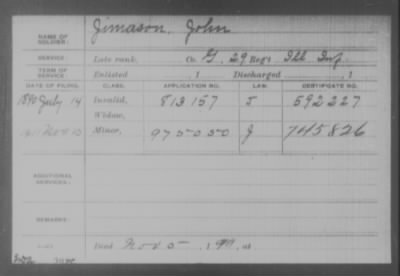 NAME OF SOLDIER: Jimason, John
SERVICE: Late rank, Co. G, 29 Reg't Ill Inf.
TERM OF SERVICE: Enlisted , 1 Discharged , 1
DATE OF FILING. CLASS. APPLICATION NO. LAW. CERTIFICATE NO.
1890 July 14 Invalid, 813157 J 592227
Widow,
1911 Nov 13 Minor, 975050 J 745826
ADDITIONAL SERVICES:
REMARKS:
Died Nov 5, 1911, at